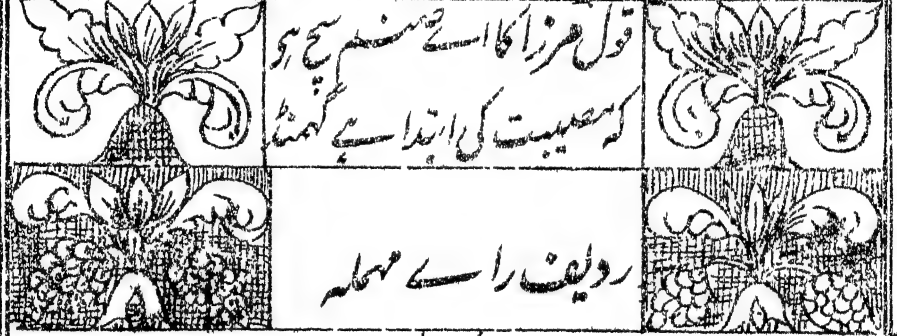 قول مرزا کا اے صنم سچ ہی
کہ مصیبت کی ابتدا ہے گھمنڈ
ردیف راے مہملہ